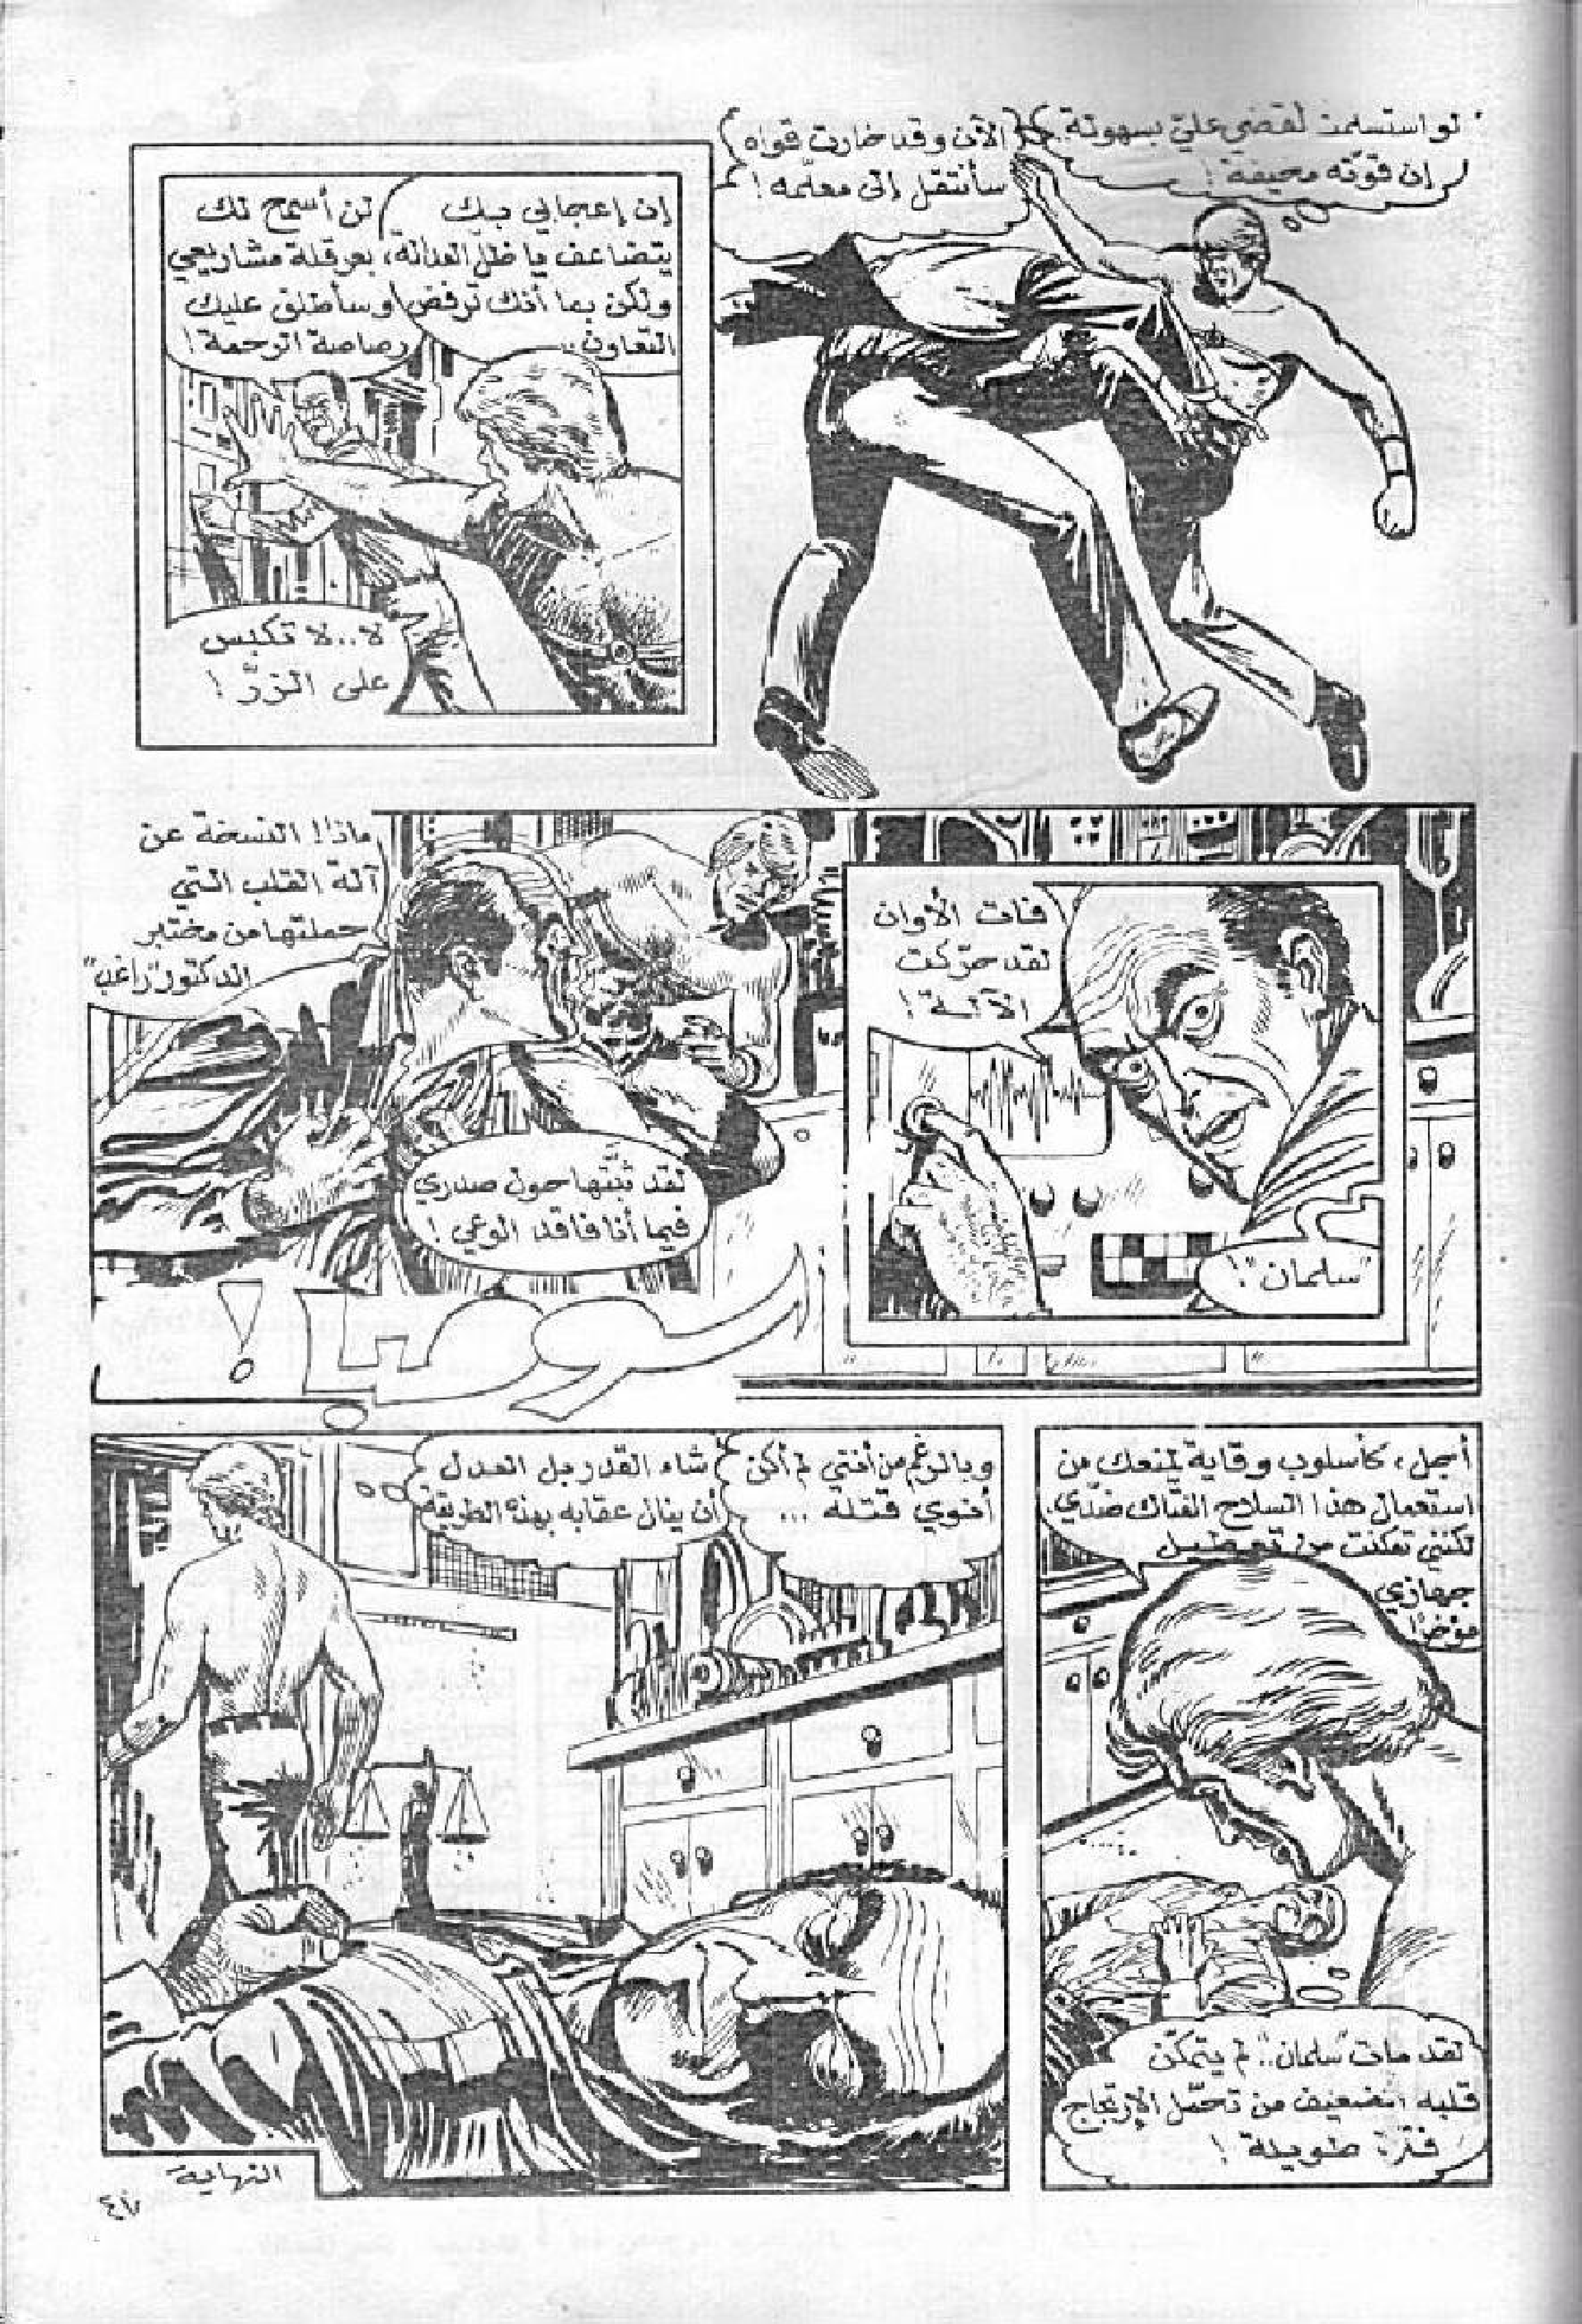 لو استسلمت لقضي عليّ بسهولة..
إن قوّته مخيفة!
الآن وقد خارت قواه
سأنتقل إلى معلّمه!
إن إعجابي بك
يتضاعف يا ظل العدالة،
ولكن بما أنك ترفض
التعاون..
لن أسمح لك
بعرقلة مشاريعي
وسأطلق عليك
رصاصة الرحمة!
لا..لا تكبس
على الزرّ!
فات الأوان
لقد حرّكت
الآلة!
"سلمان"!
ماذا! النسخة عن
آلة القلب التي
حملتها من مختبر
الدكتور "راغب"
لقد ثبّتها حول صدري
فيما أنا فاقد الوعي!
!
أجل، كأسلوب وقاية لمنعك من
استعمال هذا السلاح الفتاك ضدّي.
لكنني تمكنت من تعطيل
جهازي
عوضاً
لقد مات "سلمان".. لم يتمكّن
قلبه الضعيف من تحمّل الإرتجاج
فترة طويلة!
وبالرغم من أنني لم أكن
أنوي قتله ...
شاء القدر بل العدل
أن ينال عقابه بهذه الطريقة
النهاية